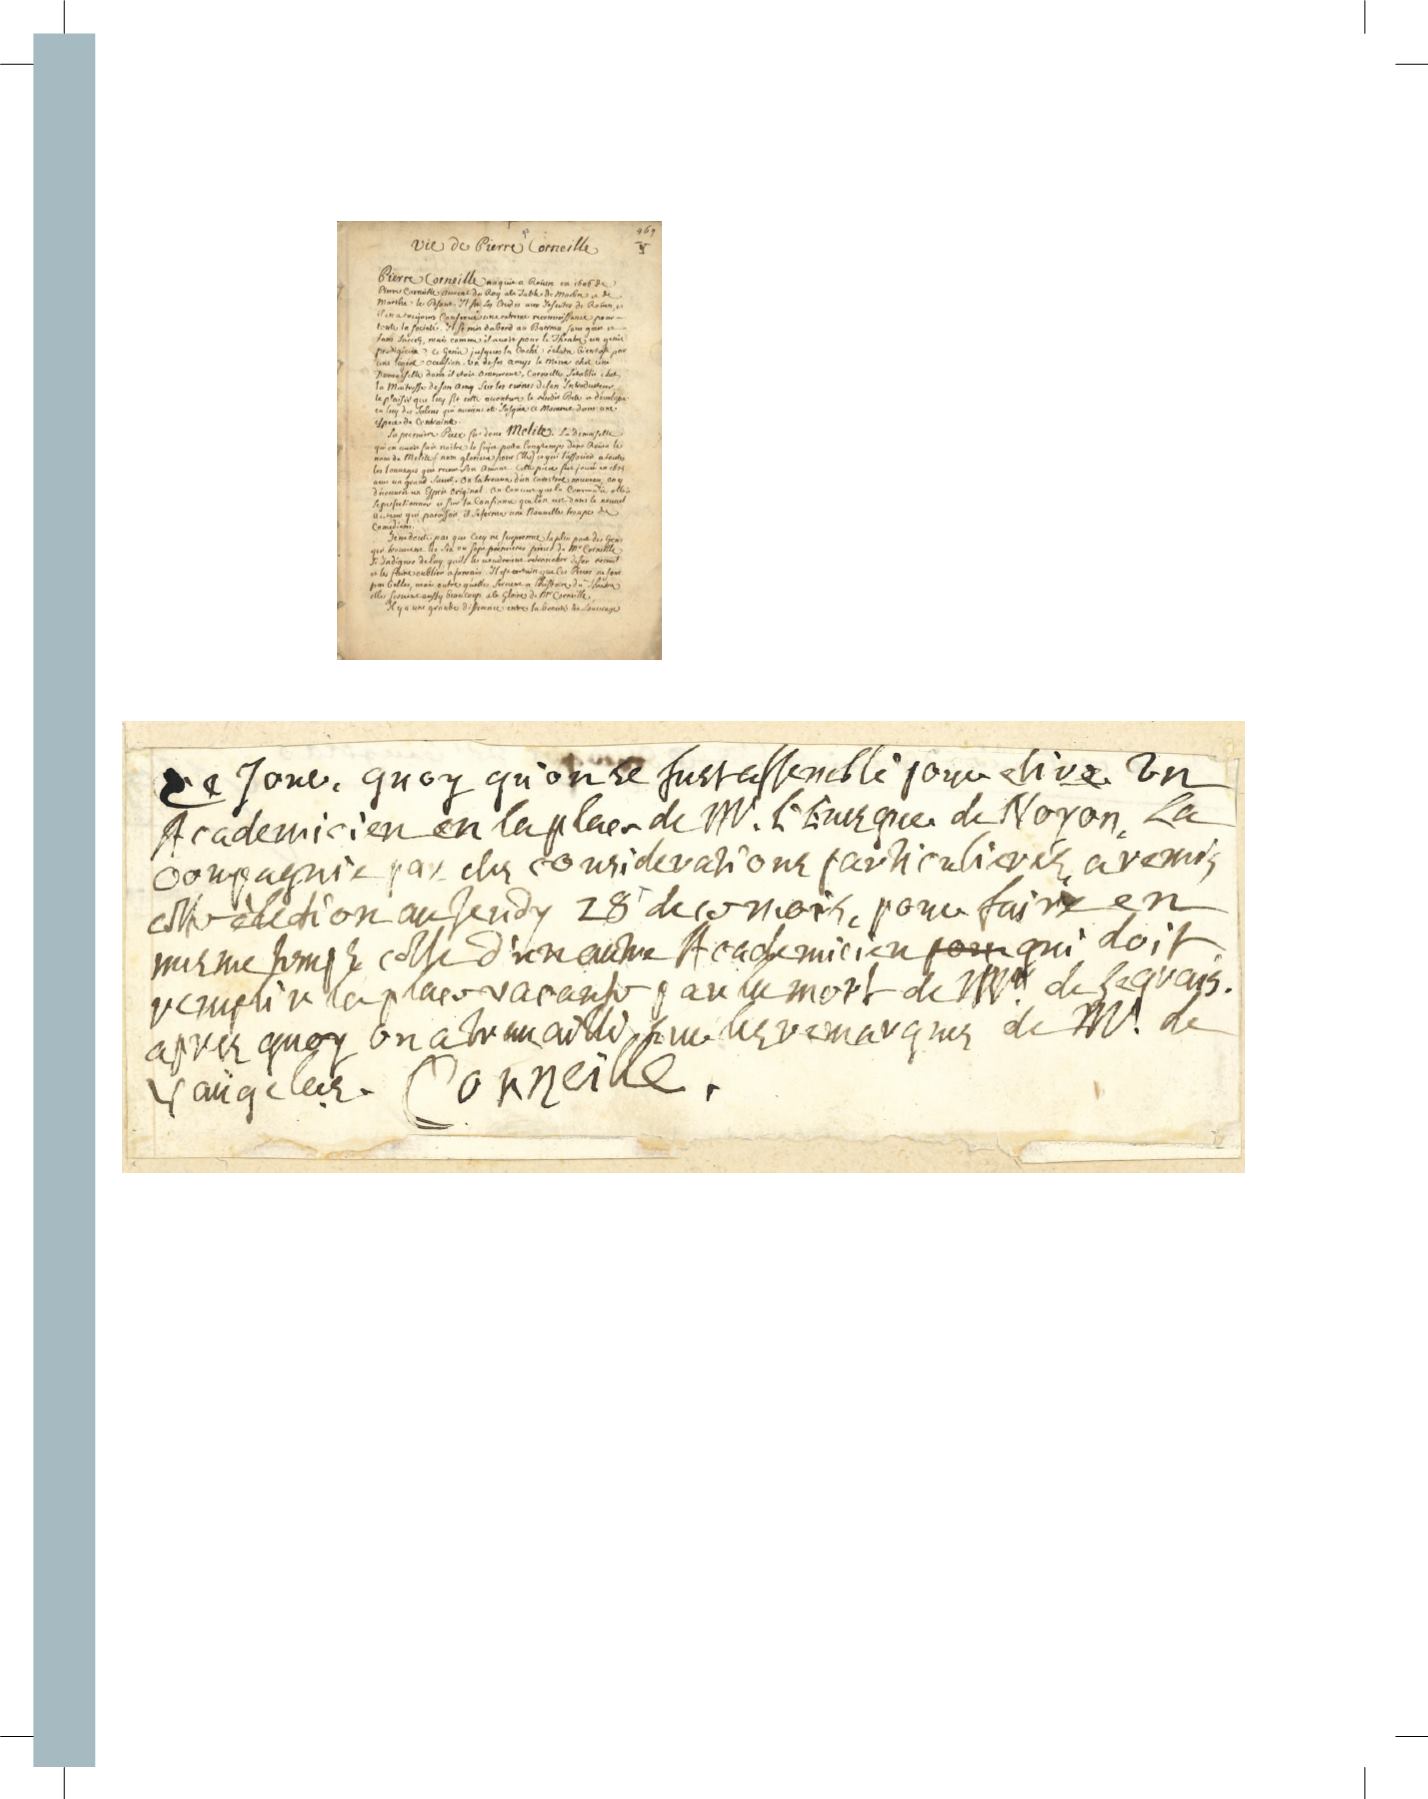 469
Vie de Pierre Corneille
Pierre Corneille naquit a Roüen en 1606 de
Pierre Corneille Avocat du Roy a la Table de Marbre et de
Marthe le Pesant. Il fit ses Etudes aux Jesuites de Roüen, et
il en a toujours Conservé une extreme reconnoissance pour
toute la societé. Il se mit d'abord au Barreau sans goust et
sans succez, mais comme il avoit pour le Theatre un genie
prodigieux ce Genie jusques la Caché éclata bientost par
une legere occasion. Un de ses amys le mena chez une
Demoiselle dont il etoit amoureux, Corneille s'etablit chez
la Maitresse de son Amy sur les ruines de son Introducteur
le plaisir que luy fit cette aventure le rendit Poete et développa
en luy des Talens qui avoient eté jusqu'a ce Moment dans une
espece de Contrainte.
Sa premiere Piece fut donc Melite. La Demoiselle
qui en avoit fait naitre le sujet porta longtemps dans Roüen le
nom de Melite, nom glorieux pour Elle, et qui l'associoit a toutes
les louanges que receut son Amant. Cette piece fut jouée en 1625
avec un grand Succez. On la trouva d'un caractere nouveau, on y
découvrit un Esprit original. On Conceut que la Comedie alloit
se perfectionner et sur la Confiance que l'on eut dans le nouvel
auteur qui paroissoit, il se forma une Nouvelle troupe de
Comediens.
Je ne doute pas que Cecy ne surprenne la plus part des Gens
qui trouvent les six ou sept premieres pieces de Mr Corneille
si Indignes de luy, qu'ils les voudroient retrancher de son recueil
et les faire oublier a jamais. Il est certain que Ces Pieces ne sont
pas belles, mais outre qu'elles servent a l'histoire du Theatre
elles servent aussy beaucoup a la Gloire de Mr Corneille.
Il y a une grande difference entre la beauté de l'ouvrage
Ce Jour, quoy qu'on se fust assemblé pour elire Un
Academicien en la place de Mr. l'Evesque de Noyon, La
Compagnie par des considerations particulieres, a remis
cette election au Jeudy 28 de ce mois, pour faire en
mesme temps celle d'un autre Academicien pour qui doit
remplir la place vacante par la mort de Mr. de Segrais.
apres quoy on a travaillé sur les remarques de Mr. de
Vaugelas. Corneille.